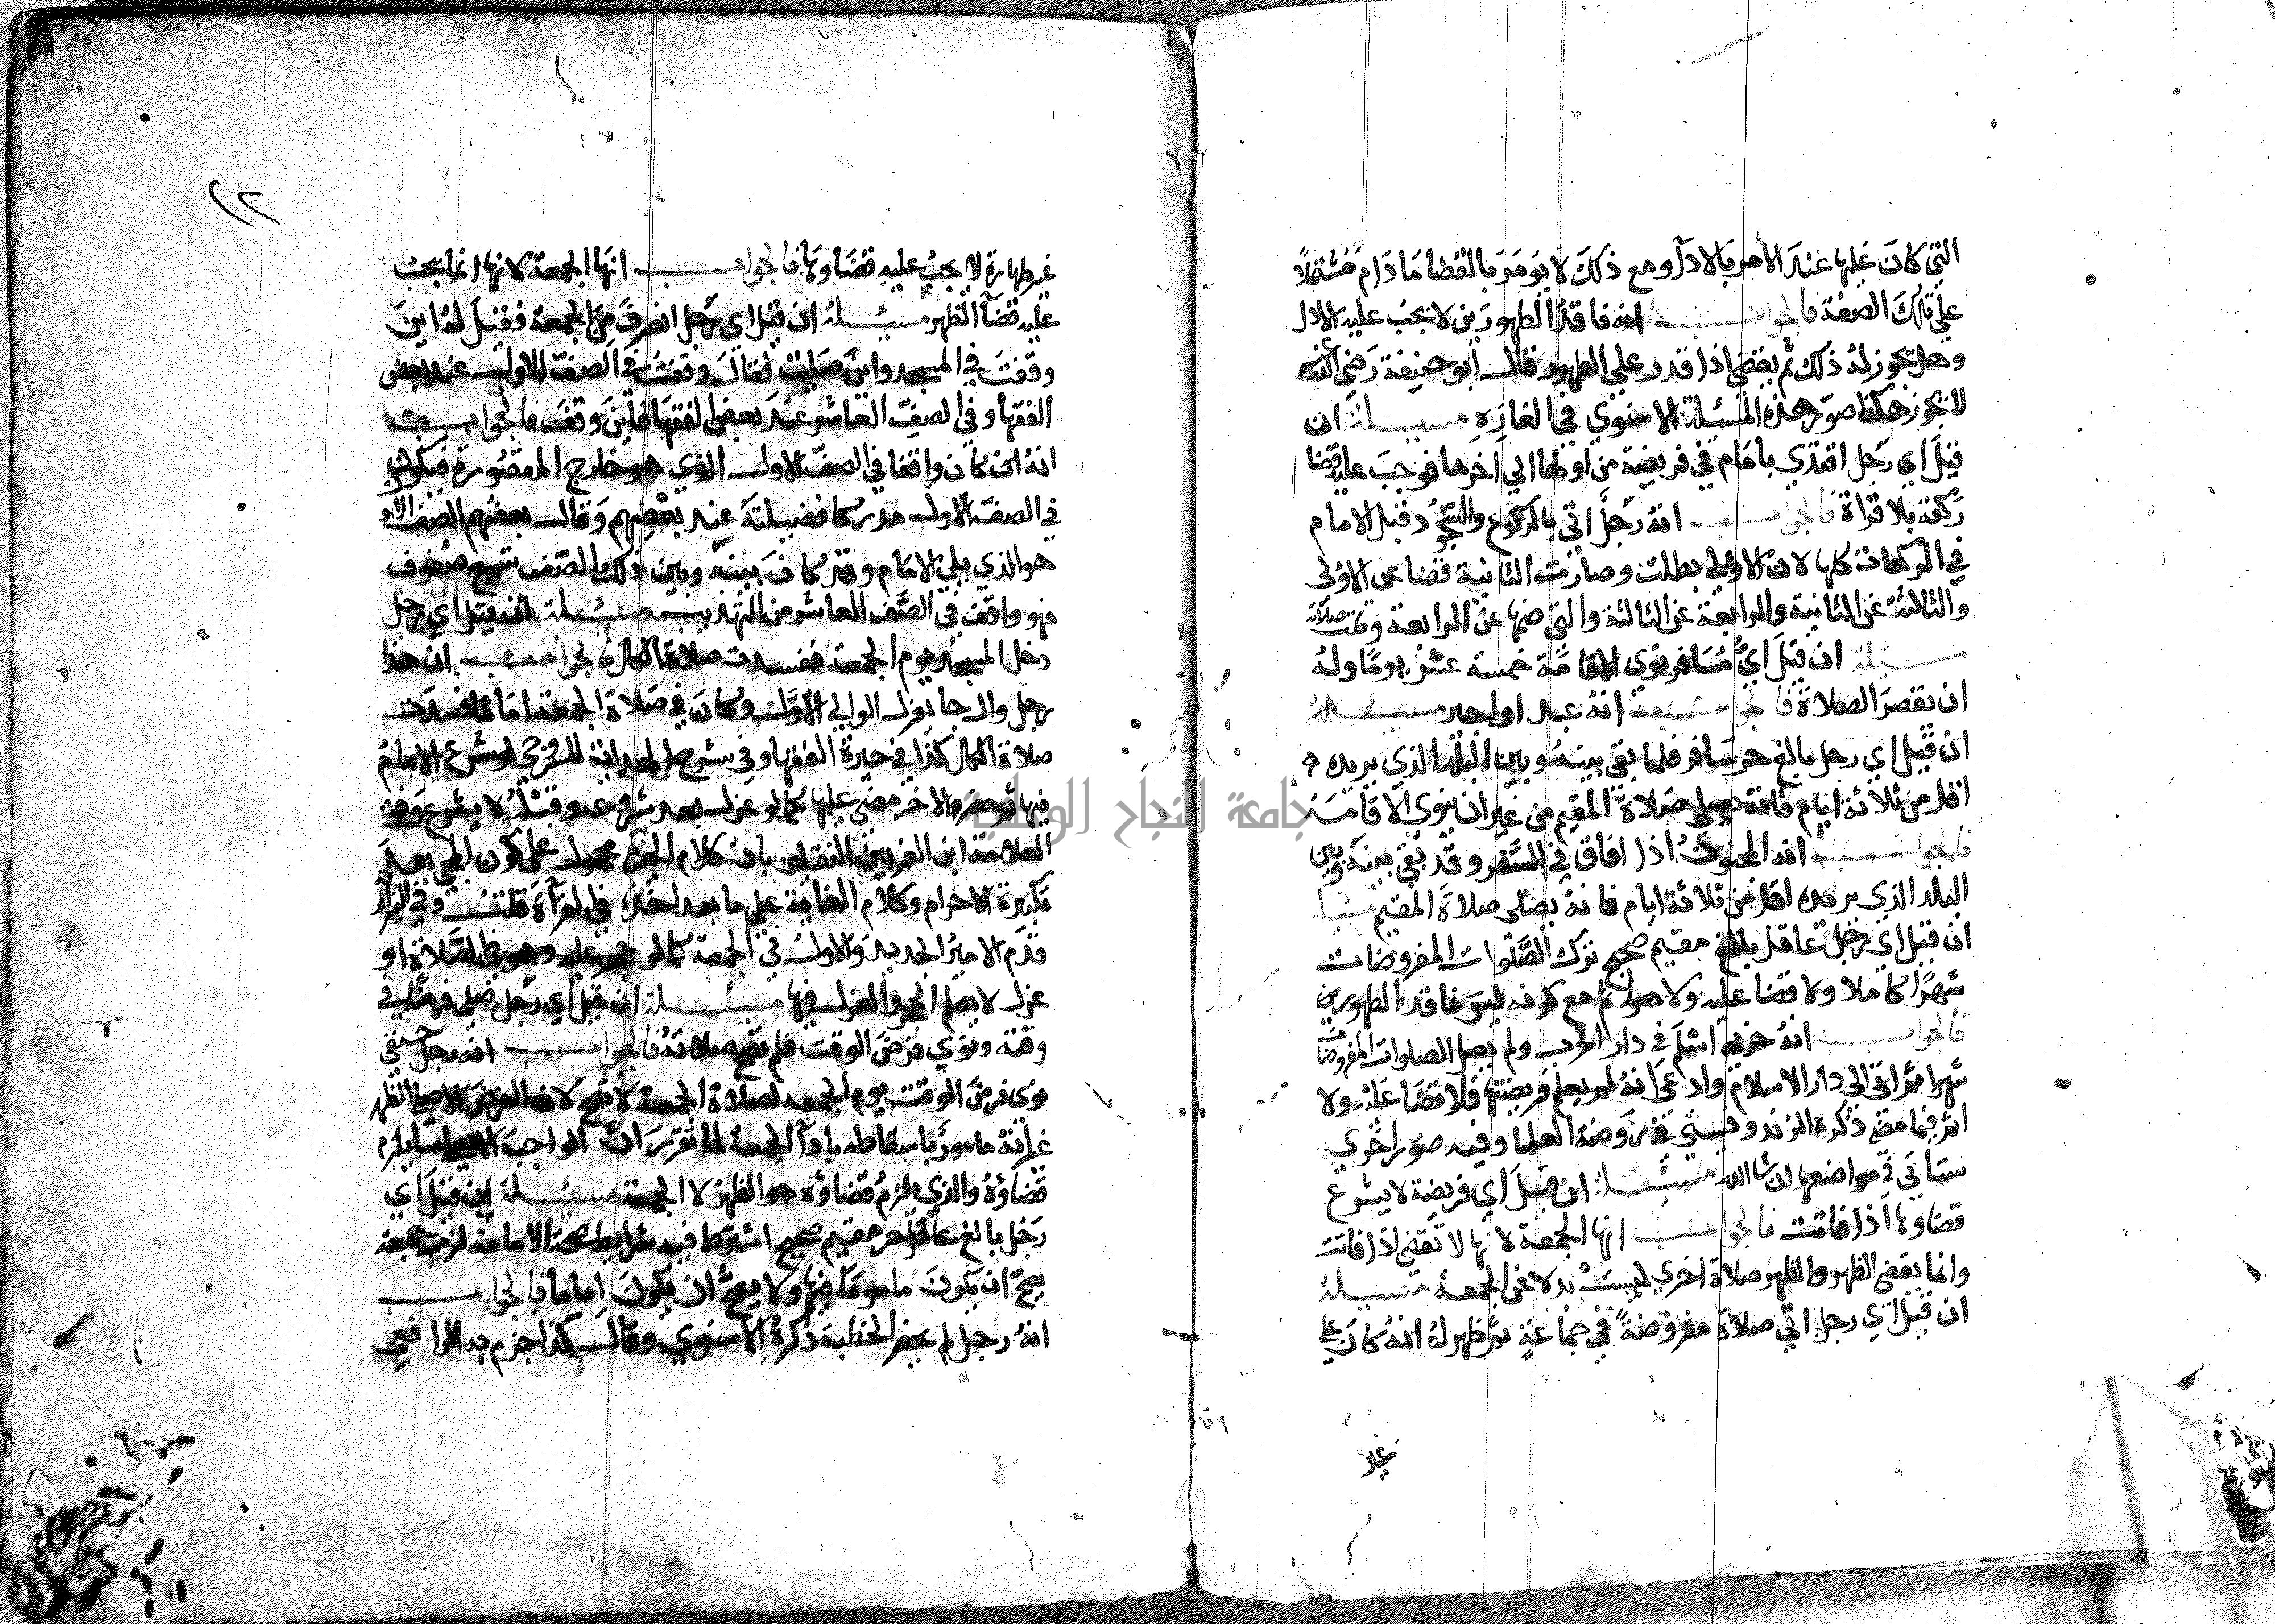 التي كان عليها عند الامر بالادآ ومع ذلك لا يومر بالقضا ما دام مشتملا
علي تلك الصفة فالجواب انه فاقد الطهورين لا يجب عليه الادا
وهل تجوز له ذلك ثم يقضي اذا قدر علي الطهور قال ابو حنيفة رضي الله عنه
لا تجوز هكذا صور هذه المسئلة الاسنوي في الغازه مسئلة ان
قيل اي رجل اقتدي بامام في فريضة من اولها الي اخرها فوجب عليه قضا
ركعة بلا قراة فالجواب انه رجل اتي بالركوع والسجود قبل الامام
في الركعات كلها لان الاولي بطلت وصارت الثانية قضا عن الاولى
والثالثة عن الثانية والرابعة عن الثالثة والتي ضمها عن الرابعة وتمت صلاته
مسئلة ان قيل اي مسافر نوي الاقامة خمسة عشر يوما وله
ان يقصر الصلاة فالجواب انه عبد او اجير مسئلة
ان قيل اي رجل بالغ حر سافر فلما بقي بينه وبين البلد الذي يريده
اقل من ثلاثة ايام فانه يصلي صلاة المقيم من غير ان ينوي الاقامة
فالجواب انه المجنون اذا افاق في السفر وقد بقي بينه وبين
البلد الذي يريده اقل من ثلاثة ايام فانه يصلي صلاة المقيم مسئلة
ان قيل اي رجل عاقل بالغ مقيم صحيح ترك الصلوات المفروضات
شهرا كاملا ولا قضا عليه ولا هو اثم مع كونه ليس فاقد الطهورين
فالجواب انه حربي اسلم في دار الحرب ولم يصل الصلوات المفروضات
شهرا ثم اتي الى دار الاسلام وادعي انه لم يعلم فريضتها فلا قضا عليه ولا
اثم فيما مضي ذكره الزندويستي في روضة العلما وفيه صور اخري
ستاتي في مواضعها ان شا الله مسئلة ان قيل اي فريضة لا يشرع
قضاوها اذا فاتت فالجواب انها الجمعة لانها لا تقضي اذا فاتت
وانما يقضي الظهر والظهر صلاة اخري ليست بدلا عن الجمعة مسئلة
ان قيل اي رجل اتي صلاة مفروضة في جماعة ثم ظهر له انه كان علي
غير
١٢
غير طهارة لا يجب عليه قضاوها فالجواب انها الجمعة لانها انما يجب
عليه قضآ الظهر مسئلة ان قيل اي رجل انصرف من الجمعة فقيل له اين
وقفت في المسجد واين صليت فقال وقفت في الصف الاول عند بعض
الفقها وفي الصف العاشر عند بعض الفقها فاين وقف فالجواب
انه كان واقفا في الصف الاول الذي هو خارج المقصورة فيكون
في الصف الاول مدركا فضيلته عند بعضهم وقال بعضهم الصف الاول
هو الذي يلي الامام وقد كان بينه وبين ذلك الصف تسع صفوف
فهو واقف في الصف العاشر من التهذيب مسئلة ان قيل اي رجل
دخل المسجد يوم الجمعة ففسدت صلاة الكل فالجواب ان هذا
رجل وال جا بعزل الوالي الاول وكان في صلاة الجمعة اماما ففسدت
صلاة الكل كذا في حيرة الفقها وفي شرح الهداية للسروجي لو شرع الامام
فيها ثم حضر والاخر مضي عليها كما لو عزل بعد شروعه وقبله لا يشرع ووفق
العلامة ابن العز بين النقلين بان كلام محمول علي كون المجي بعد
تكبيرة الاحرام وكلام الغاية علي ما بعد اخذه في القرآة قلت وفي
قدم الامير الجديد والاول في الجمعة كما لو حجر عليه وهو في الصلاة او
عزل لا يعلم الحجر والعزل فيها مسئلة ان قيل اي رجل صلى فرضا في
وقته ونوي فرض الوقت فلم تصح صلاته فالجواب انه رجل حنفي
نوى فرض الوقت يوم الجمعه لصلاة الجمعة لا تصح لان الفرض الاصلي الظهر
غير انه مامور باسقاطه بادآ الجمعة لما تقرر ان الواجب الاصلي ما يلزم
قضاؤه والذي يلزم قضاؤه هو الظهر لا الجمعة مسئلة ان قيل اي
رجل بالغ عاقل حر مقيم صحيح اشترط فيه شرايط صحة الامامة لزمته جمعة
يصح ان يكون ماموما فيها ولا يصح ان يكون اماما فالجواب
انه رجل لم يحضر الخطبة ذكره الاسنوي وقال كذا جزم به الرافعي
جامعة النجاح الوطنية